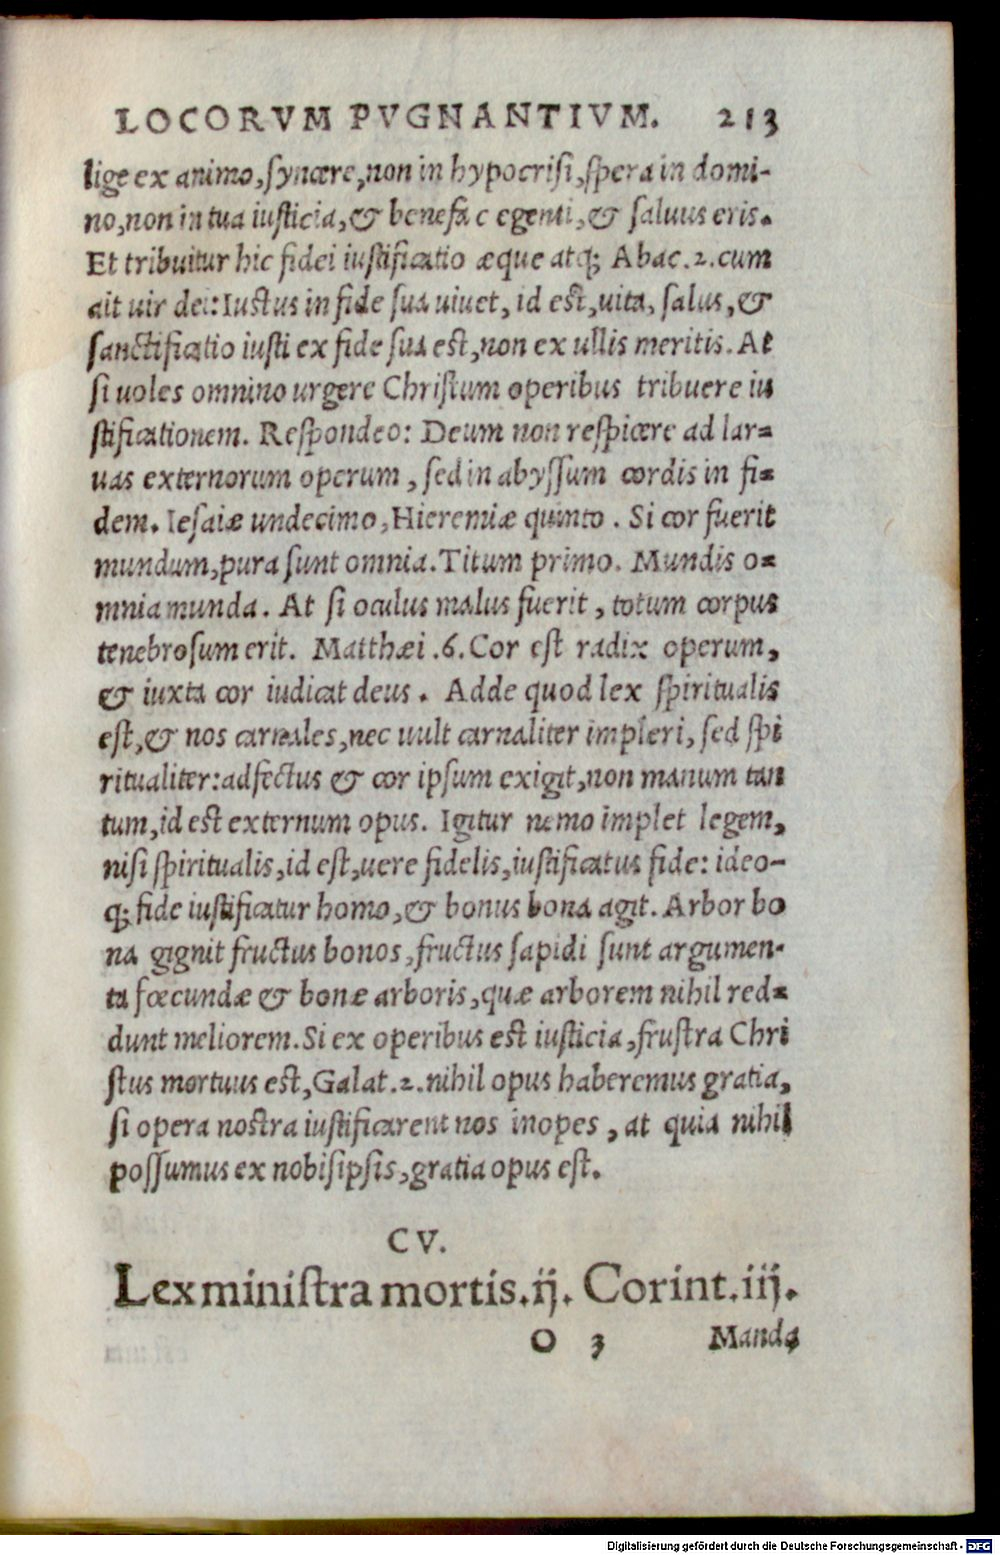 LOCORVM PVGNANTIVM. 213
lige ex animo, syncere, non in hypocrisi, spera in domi-
no, non in tua iusticia, & benefac egenti, & saluus eris.
Et tribuitur hic fidei iustificatio æque atq; Abac. 2. cum
ait uir dei: Iustus in fide sua uiuet, id est, uita, salus, &
sanctificatio iusti ex fide sua est, non ex ullis meritis. At
si uoles omnino urgere Christum operibus tribuere iu
stificationem. Respondeo: Deum non respicere ad lar-
uas externorum operum, sed in abyssum cordis in fi-
dem. Iesaiæ undecimo, Hieremiæ quinto. Si cor fuerit
mundum, pura sunt omnia. Titum primo. Mundis o-
mnia munda. At si oculus malus fuerit, totum corpus
tenebrosum erit. Matthæi .6. Cor est radix operum,
& iuxta cor iudicat deus. Adde quod lex spiritualis
est, & nos carnales, nec uult carnaliter impleri, sed spi
ritualiter: adfectus & cor ipsum exigit, non manum tan
tum, id est externum opus. Igitur nemo implet legem,
nisi spiritualis, id est, uere fidelis, iustificatus fide: ideo-
q; fide iustificatur homo, & bonus bona agit. Arbor bo
na gignit fructus bonos, fructus sapidi sunt argumen-
ta fœcundæ & bonæ arboris, quæ arborem nihil red-
dunt meliorem. Si ex operibus est iusticia, frustra Chri
stus mortuus est, Galat. 2. nihil opus haberemus gratia,
si opera nostra iustificarent nos inopes, at quia nihil
possumus ex nobisipsis, gratia opus est.
CV.
Lex ministra mortis. ij. Corint. iij.
O 3 Manda
Digitalisierung gefördert durch die Deutsche Forschungsgemeinschaft - DFG